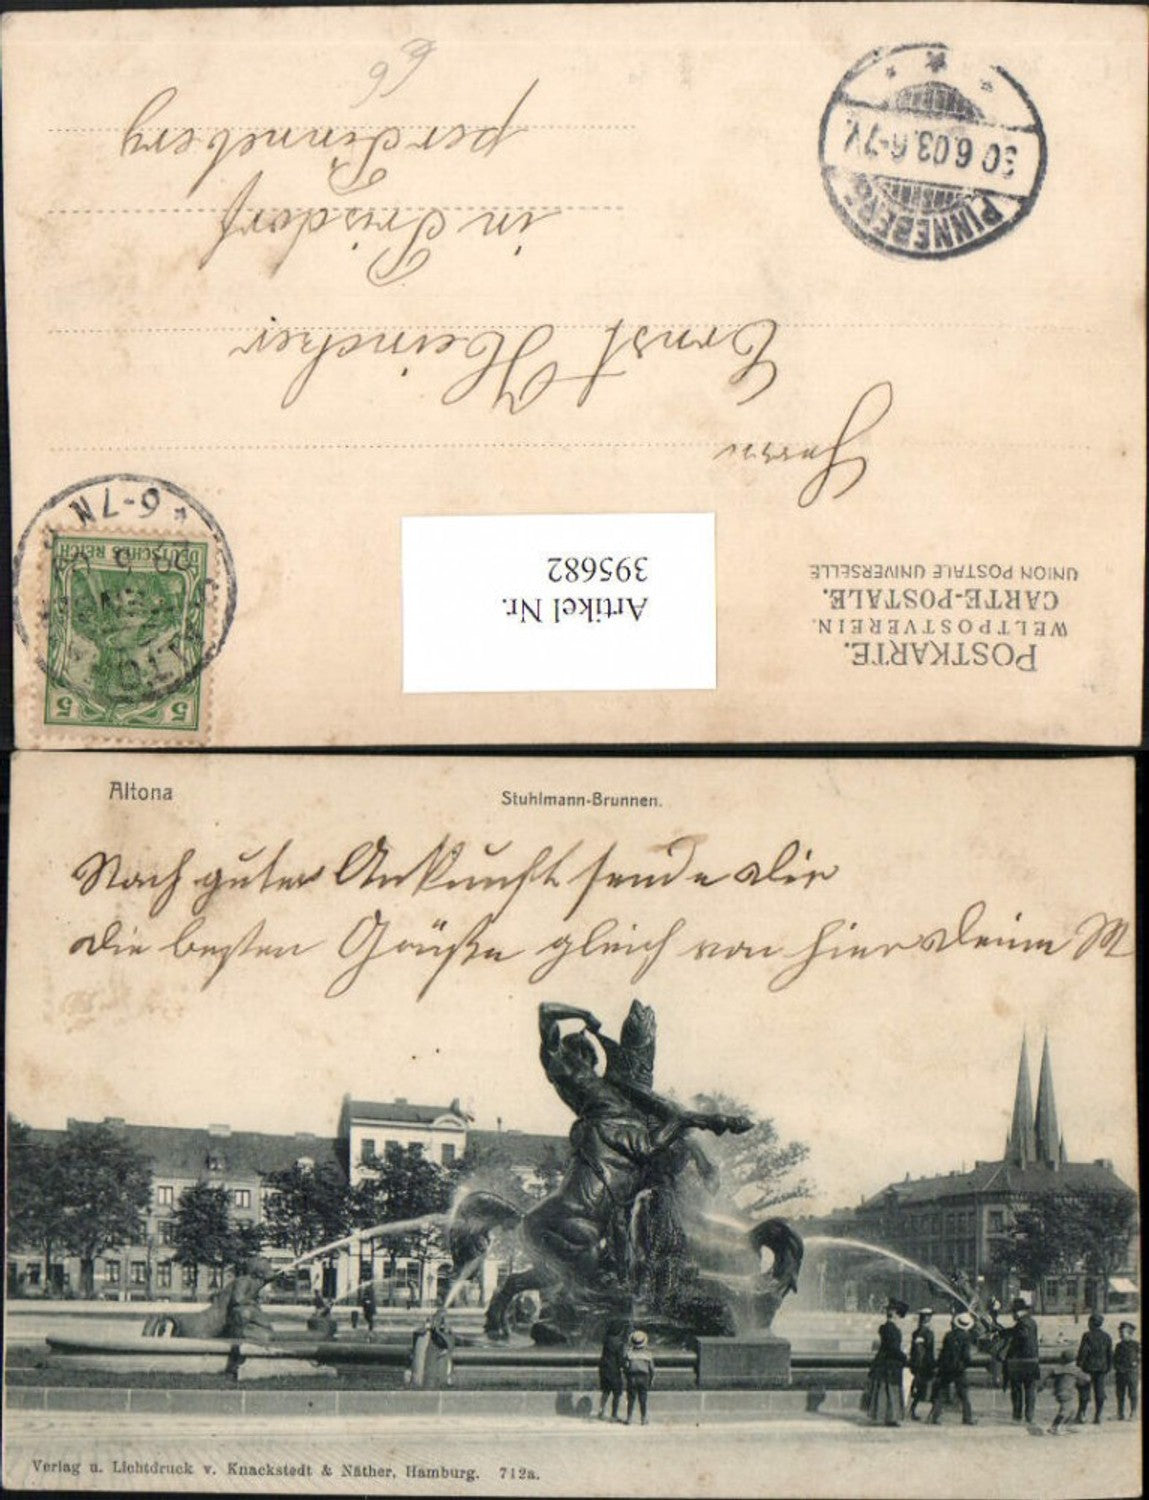 POSTKARTE.
WELTPOSTVEREIN.
CARTE-POSTALE.
UNION POSTALE UNIVERSELLE
Artikel Nr.
395682
5 5
DEUTSCHES REICH
6-7N
Herrn
Ernst
in Prisdorf
per Pinneberg
66
PINNEBERG
30.6.03.6-7V.
Altona
Stuhlmann-Brunnen.
Nach guter Ankunft sende Dir
die besten Grüße gleich von hier Deine M
Verlag u. Lichtdruck v. Knackstedt & Näther, Hamburg. 712a.